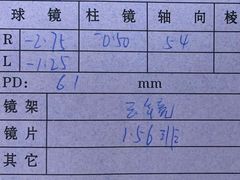 球镜 柱镜 轴向 棱
R -2.75 -0.50 54
L -1.25
PD: 61 mm
镜架
镜片 1.56
其它